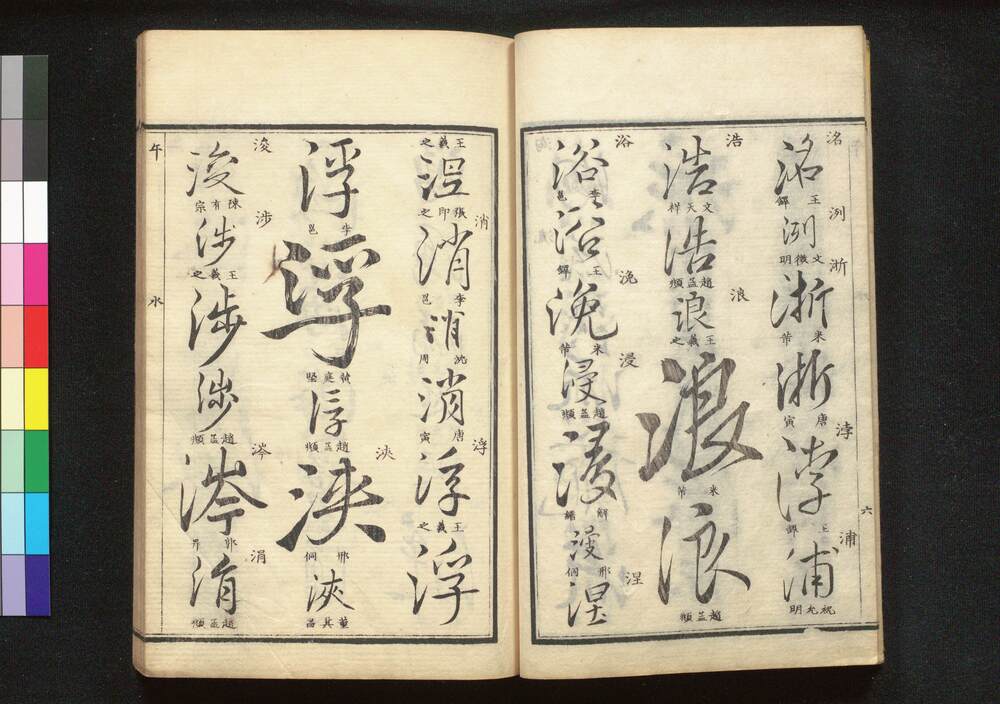 洺
洺
王鐸
洌
洌
文徵明
浙
浙
米芾
浙
唐寅
浡
浡
王鐸
浦
浦
祝允明
六
浩
浩
文天祥
浩
趙孟頫
浪
浪
王羲之
浪
米芾
浪
趙孟頫
浴
浴
李邕
浴
王鐸
浼
浼
米芾
浸
浸
趙孟頫
浸
解縉
浸
邢侗
涅
涅
王羲之
涅
張卽之
消
消
李邕
消
沈周
消
唐寅
浮
浮
王羲之
浮
浮
李邕
浮
黃庭堅
浮
趙孟頫
浹
浹
邢侗
浹
董其昌
浚
浚
陳有宗
涉
涉
王羲之
涉
涉
趙孟頫
涔
涔
郭畀
涓
涓
趙孟頫
午
水